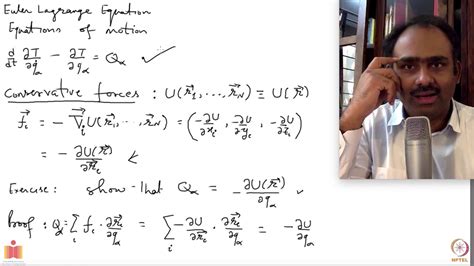 Euler Lagrange Equation
Equations of motion
d/dt ∂T/∂q̇α − ∂T/∂qα = Qα ✓
Conservative forces : U(r⃗1, ..., r⃗N) ≡ U(r⃗)
f⃗i = − ∇⃗i U(r⃗1, ..., r⃗N) = (−∂U/∂xi, −∂U/∂yi, −∂U/∂zi)
= − ∂U(r⃗)/∂r⃗i
Exercise: show that Qα = − ∂U(r⃗)/∂qα
Proof : Qα = Σi f⃗i · ∂r⃗i/∂qα = Σi −∂U/∂r⃗i · ∂r⃗i/∂qα = − ∂U/∂qα
NPTEL